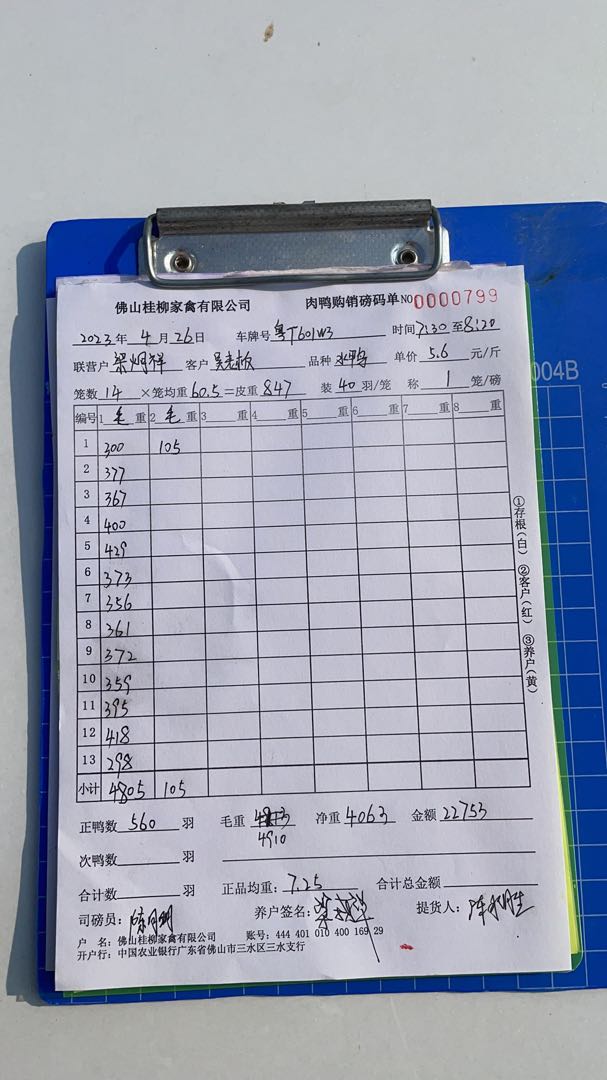 佛山桂柳家禽有限公司 肉鸭购销磅码单 NO 0000799
2023年 4月 26日 车牌号 粤T601W3 时间 7:30 至 8:20
联营户 客户 品种 水鸭 单价 5.6 元/斤
笼数 14 ×笼均重 60.5 =皮重 847 装 40 羽/笼 称 1 笼/磅
编号 1 毛 重 2 毛 重 3 重 4 重 5 重 6 重 7 重 8 重
1 300 105
2 377
3 367
4 400
5 429
6 373
7 356
8 361
9 372
10 359
11 395
12 418
13 298
小计 4805 105
①存根(白) ②客户(红) ③养户(黄)
正鸭数 560 羽 毛重 净重 4063 金额 22753
4910
次鸭数 羽
合计数 羽 正品均重: 7.25 合计总金额
司磅员: 养户签名: 提货人:
户 名: 佛山桂柳家禽有限公司 账号: 444 401 010 400 169 29
开户行: 中国农业银行广东省佛山市三水区三水支行
004B